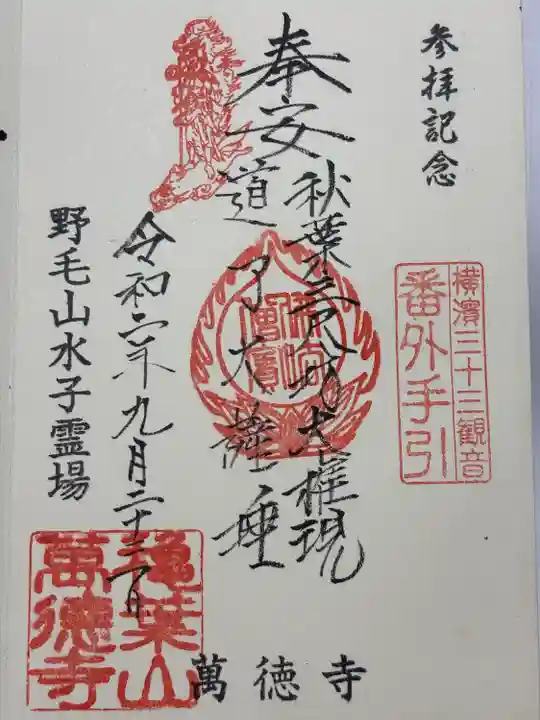 参拝記念
横濱三十三観音
番外手引
奉安
秋葉三尺坊大権現
道了大薩埵
令和六年九月二十三日
野毛山水子霊場
萬徳寺
葉山
萬徳寺